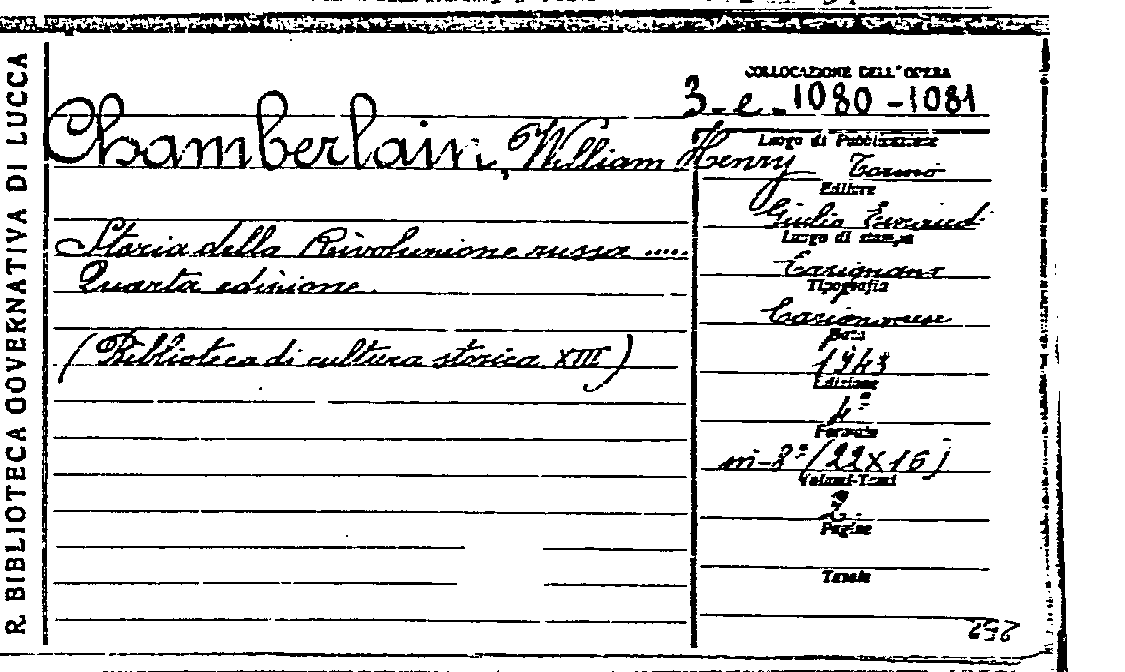 R. BIBLIOTECA GOVERNATIVA DI LUCCA
COLLOCAZIONE DELL'OPERA
3-e-1080-1081
Chamberlain, William Henry
Storia della Rivoluzione russa .....
Quarta edizione.
(Biblioteca di cultura storica XIII)
Luogo di Pubblicazione
Torino
Editore
Giulio Einaudi
Luogo di stampa
Carignano
Tipografia
Data
1943
Edizione
4ª
Formato
in-8º (22x16)
Volumi-Tomi
2.
Pagine
Tavole
252